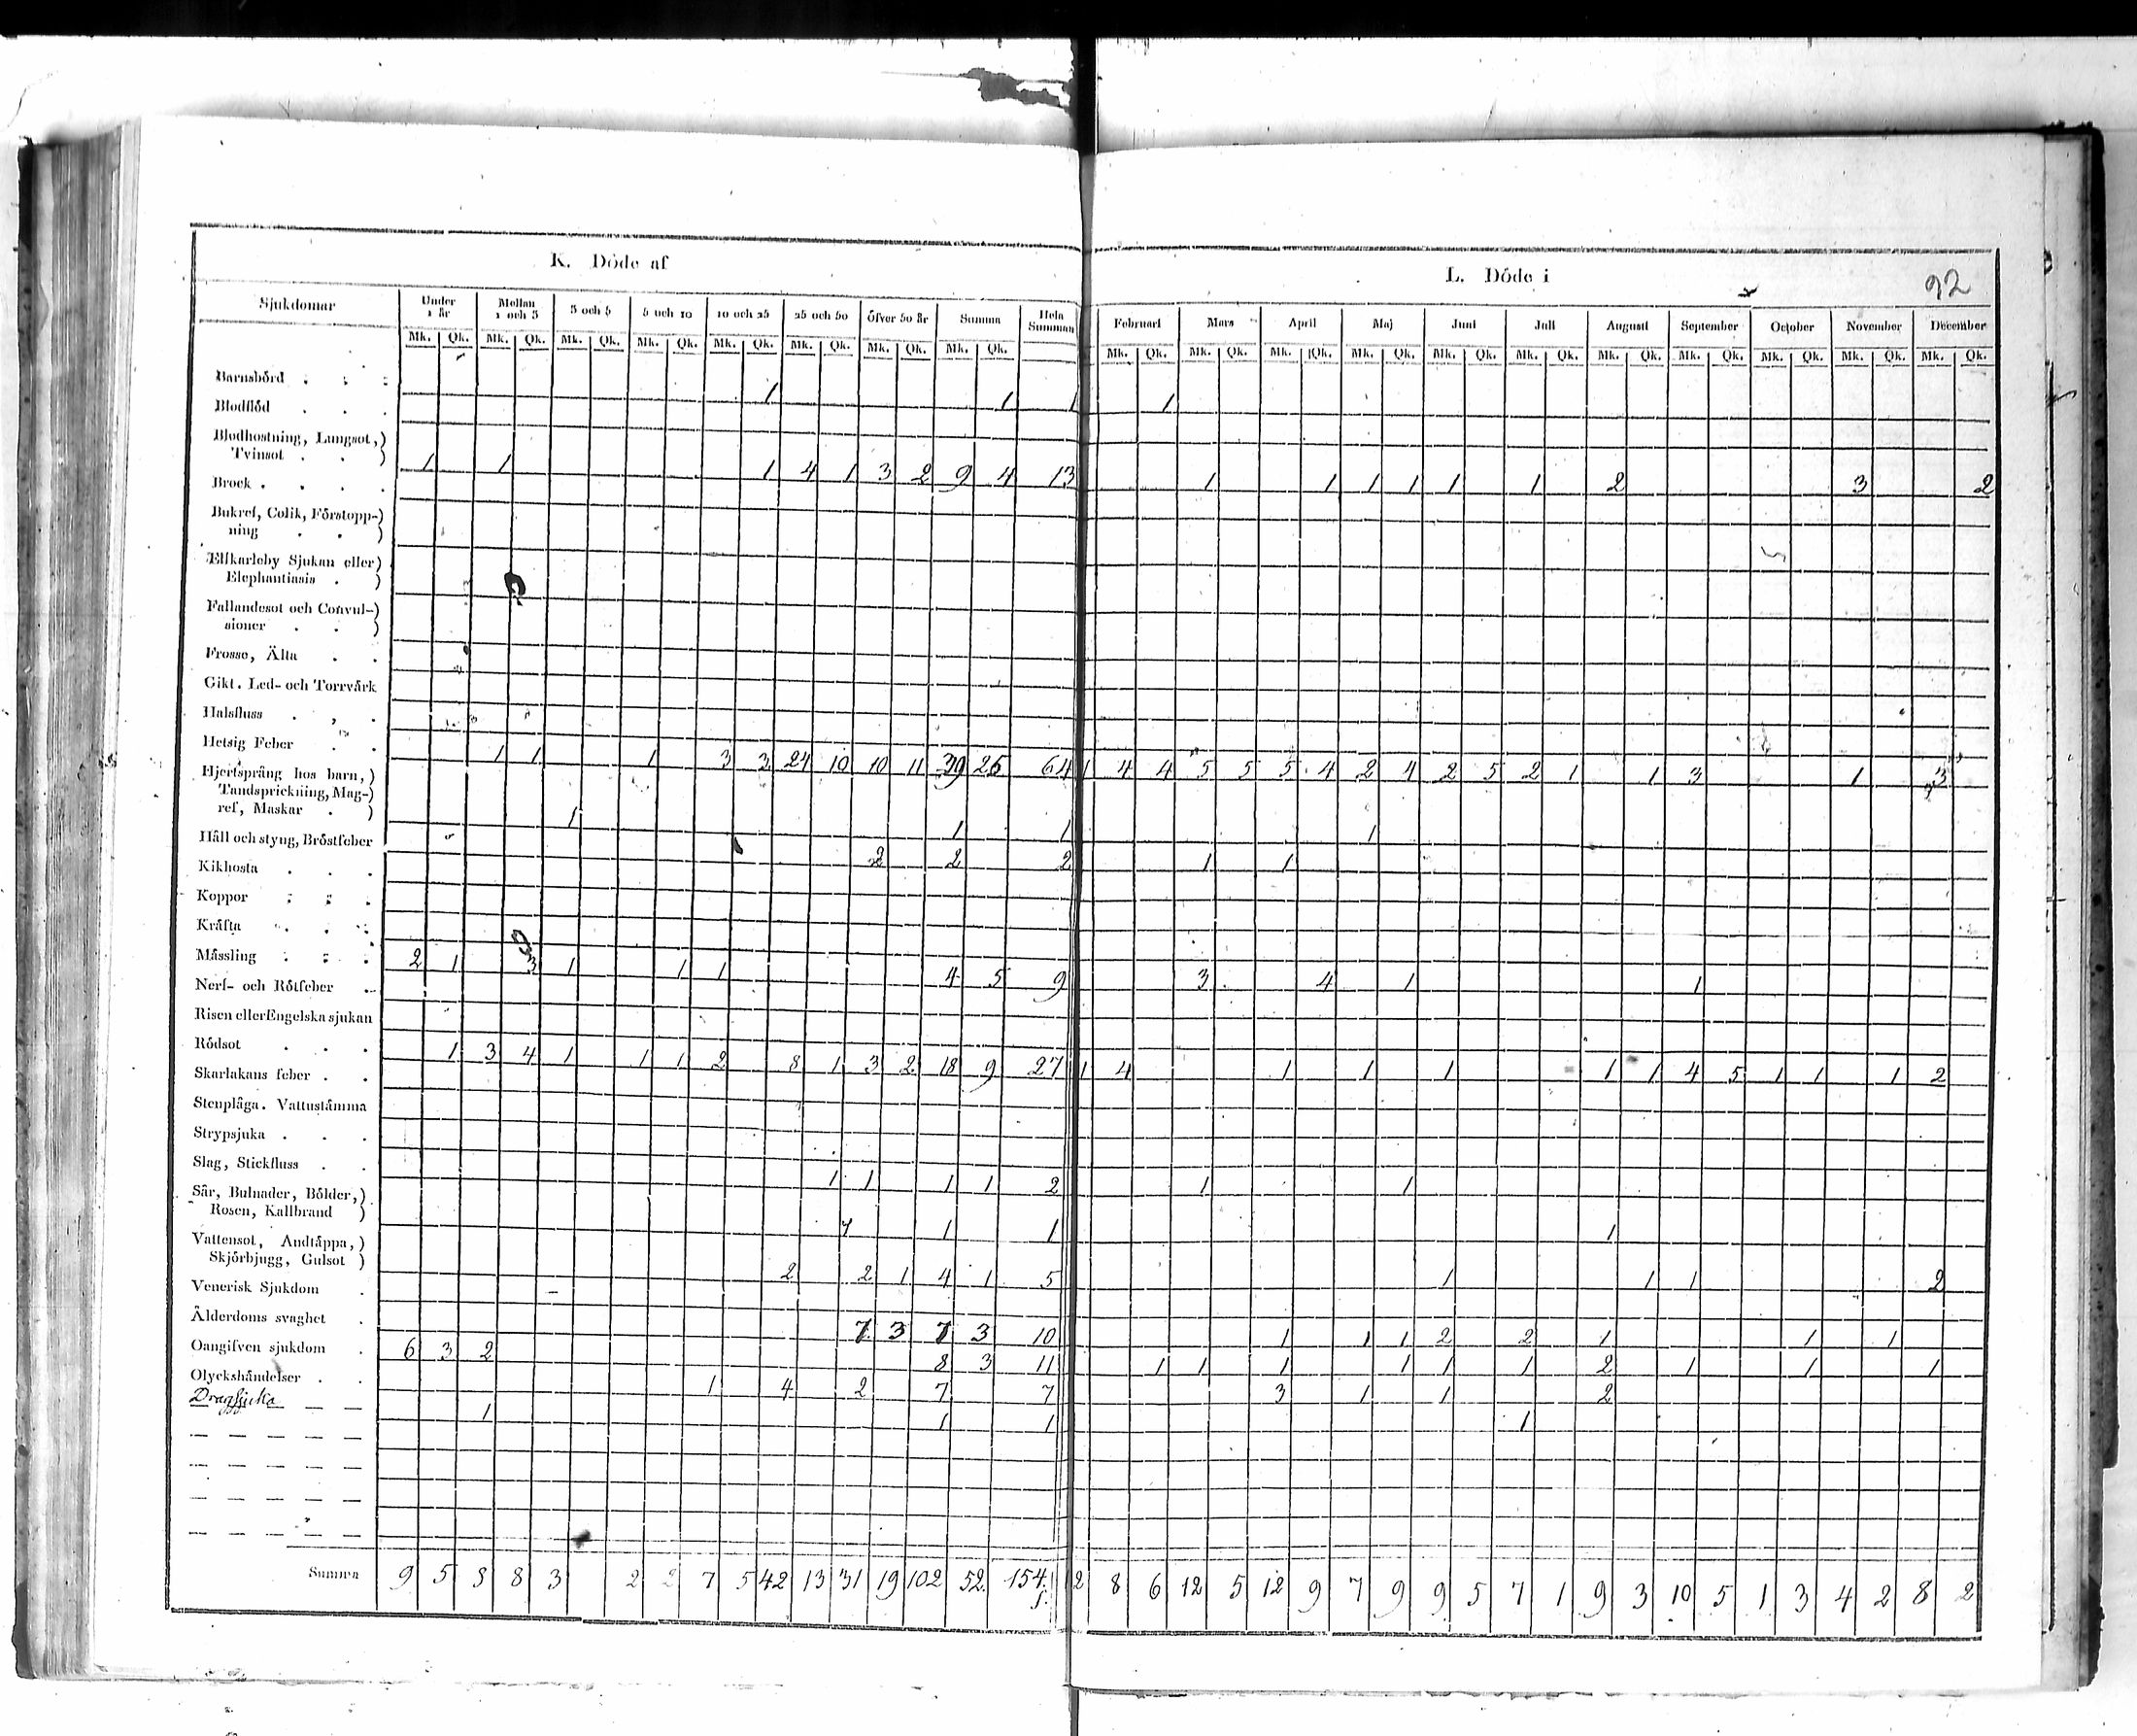 K. Döde af
L. Döde i
92
Sjukdomar Under 1 år Mellan 1 och 3 3 och 5 5 och 10 10 och 25 25 och 50 Öfver 50 år Summa Hela Summan Februari Mars April Maj Juni Juli Augusti September October November December
Mk. Qk. Mk. Qk. Mk. Qk. Mk. Qk. Mk. Qk. Mk. Qk. Mk. Qk. Mk. Qk. Mk. Qk. Mk. Qk. Mk. Qk. Mk. Qk. Mk. Qk. Mk. Qk. Mk. Qk. Mk. Qk. Mk. Qk. Mk. Qk. Mk. Qk.
Barnsbörd . . . 1 1 1 1
Blodflöd . . .
Blodhostning, Lungsot,)
Tvinsot . . ) 1 1 1 4 1 3 2 9 4 13 1 1 1 1 1 1 2 3 2
Brock . . . .
Bukref, Colik, Förstopp-)
ning . . )
Elfkarleby Sjukan eller)
Elephantiasis . )
Fallandesot och Convul-)
sioner . . )
Frosse, Älta . .
Gikt. Led- och Torrvärk
Halsfluss . . .
Hetsig Feber . . 1 1 1 3 3 24 10 10 11 39 25 64 1 4 4 5 5 5 4 2 4 2 5 2 1 1 3 1 3
Hjertsprång hos barn,)
Tandsprickning, Mag-)
ref, Maskar . ) 1 1 1 1
Håll och styng, Bröstfeber 2 2 2 1 1
Kikhosta . . .
Koppor . . .
Kräfta . . .
Mässling . . . 2 1 3 1 1 1 4 5 9 3 4 1 1
Nerf- och Rötfeber .
Risen eller Engelska sjukan
Rödsot . . . 1 3 4 1 1 1 2 8 1 3 2 18 9 27 1 4 1 1 1 1 1 4 5 1 1 1 2
Skarlakans feber . .
Stenplåga. Vattustämma
Strypsjuka . . .
Slag, Stickfluss . . 1 1 1 1 2 1 1
Sår, Bulnader, Bölder,)
Rosen, Kallbrand ) 1 1 1
Vattensot, Andtäppa,)
Skjörbjugg, Gulsot ) 2 2 1 4 1 5 1 1 1 2
Venerisk Sjukdom .
Ålderdoms svaghet . 7 3 7 3 10 1 1 1 2 2 1 1 1
Oangifven sjukdom . 6 3 2 8 3 11 1 1 1 1 1 1 2 1 1 1
Olyckshändelser . . 1 4 2 7 7 3 1 1 2
Dragsjuka 1 1 1 1
Summa 9 5 8 8 3 2 2 7 5 42 13 31 19 102 52 154 2 8 6 12 5 12 9 7 9 9 5 7 1 9 3 10 5 1 3 4 2 8 2